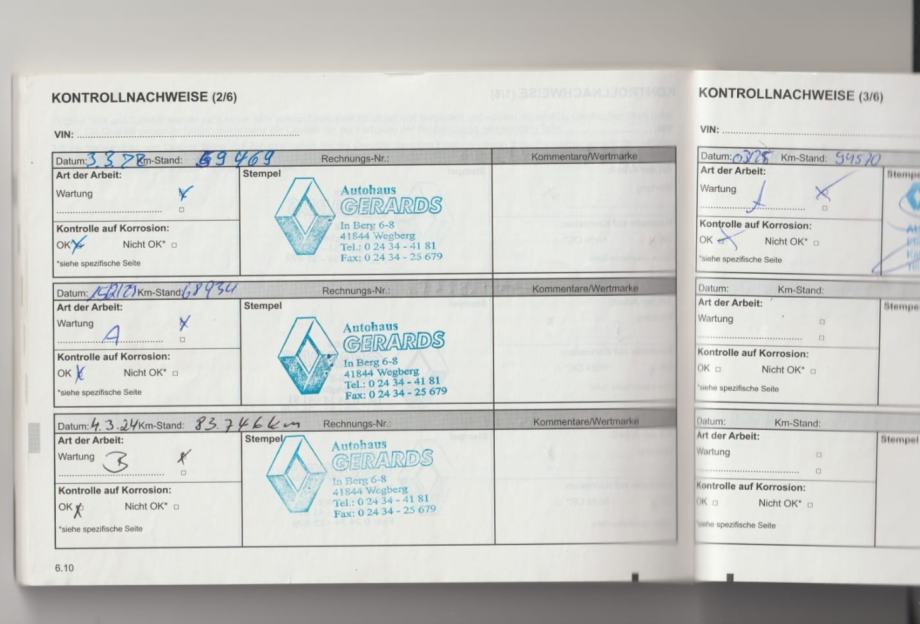 KONTROLLNACHWEISE (2/6)
VIN:
Datum: 3.3.22 Km-Stand: 59469 Rechnungs-Nr.: Kommentare/Wertmarke
Art der Arbeit: Stempel
Wartung
Autohaus
GERARDS
In Berg 6-8
41844 Wegberg
Tel.: 0 24 34 - 41 81
Fax: 0 24 34 - 25 679
Kontrolle auf Korrosion:
OK Nicht OK*
*siehe spezifische Seite
Datum: Km-Stand: 68934 Rechnungs-Nr.: Kommentare/Wertmarke
Art der Arbeit: Stempel
Wartung
A
Autohaus
GERARDS
In Berg 6-8
41844 Wegberg
Tel.: 0 24 34 - 41 81
Fax: 0 24 34 - 25 679
Kontrolle auf Korrosion:
OK Nicht OK*
*siehe spezifische Seite
Datum: 4.3.24 Km-Stand: 83.746 km Rechnungs-Nr.: Kommentare/Wertmarke
Art der Arbeit: Stempel
Wartung B
Autohaus
GERARDS
In Berg 6-8
41844 Wegberg
Tel.: 0 24 34 - 41 81
Fax: 0 24 34 - 25 679
Kontrolle auf Korrosion:
OK Nicht OK*
*siehe spezifische Seite
6.10
KONTROLLNACHWEISE (3/6)
VIN:
Datum: 03/25 Km-Stand: 94510
Art der Arbeit:
Wartung
Kontrolle auf Korrosion:
OK Nicht OK*
*siehe spezifische Seite
Datum: Km-Stand:
Art der Arbeit:
Wartung
Kontrolle auf Korrosion:
OK Nicht OK*
*siehe spezifische Seite
Datum: Km-Stand:
Art der Arbeit:
Wartung
Kontrolle auf Korrosion:
OK Nicht OK*
*siehe spezifische Seite